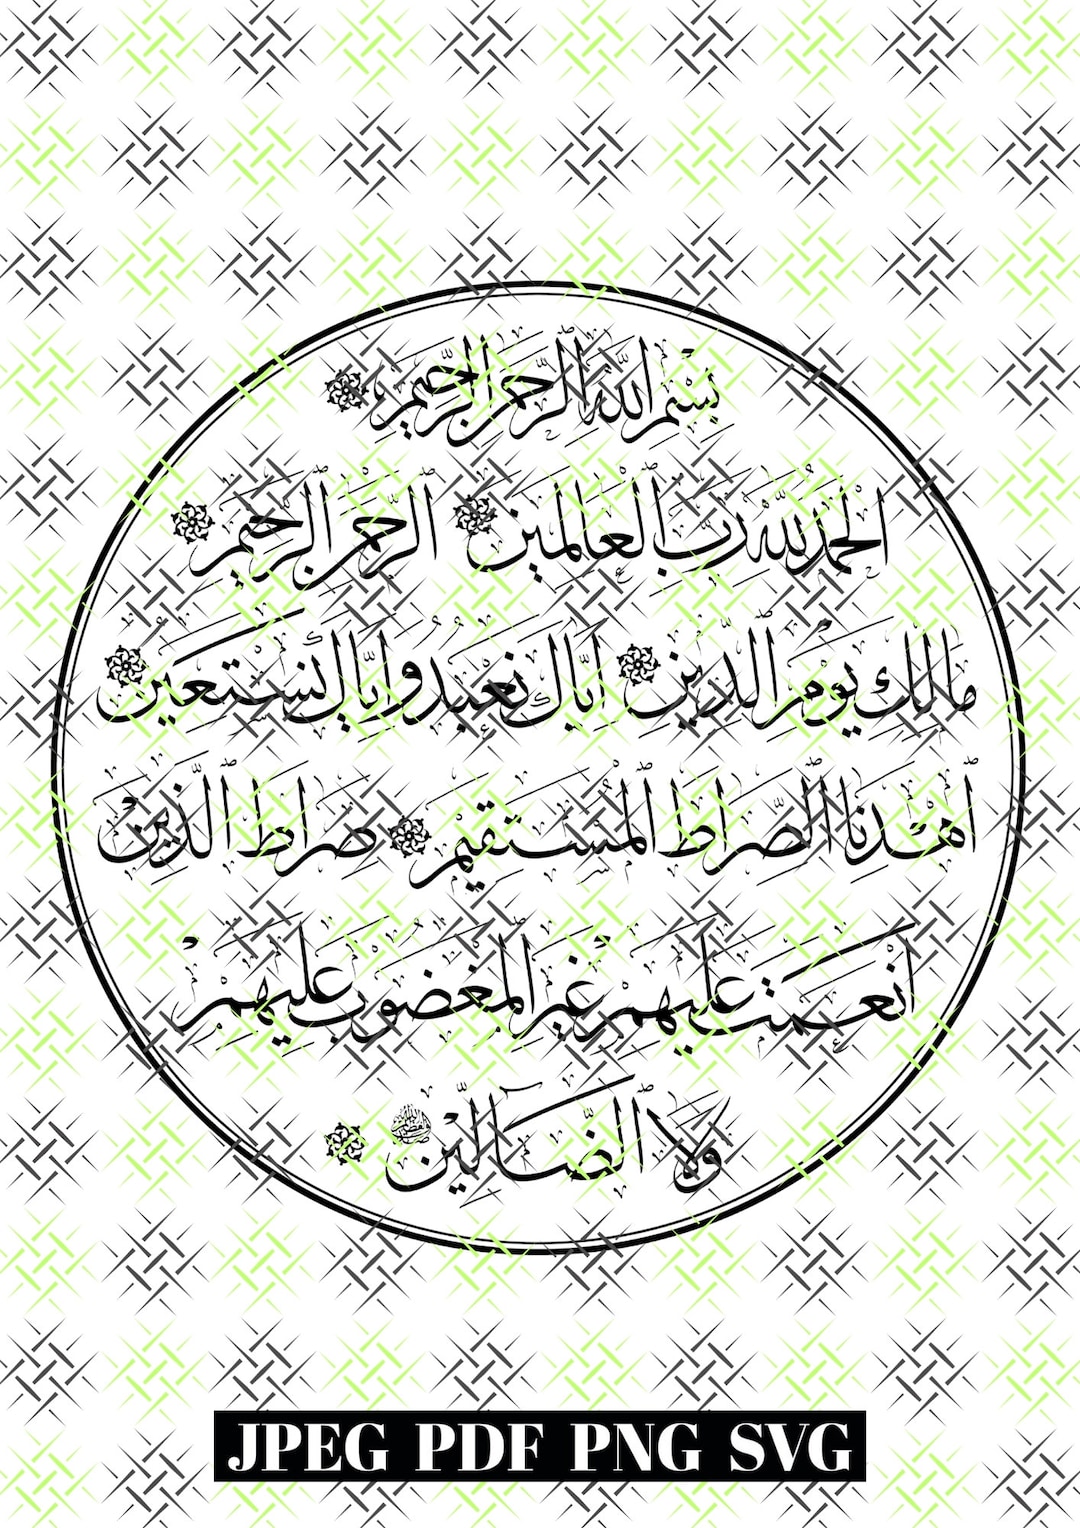 بِسْمِ اللَّهِ الرَّحْمَنِ الرَّحِيمِ
الْحَمْدُ لِلَّهِ رَبِّ الْعَالَمِينَ الرَّحْمَنِ الرَّحِيمِ
مَالِكِ يَوْمِ الدِّينِ إِيَّاكَ نَعْبُدُ وَإِيَّاكَ نَسْتَعِينُ
اهْدِنَا الصِّرَاطَ الْمُسْتَقِيمَ صِرَاطَ الَّذِينَ
أَنْعَمْتَ عَلَيْهِمْ غَيْرِ الْمَغْضُوبِ عَلَيْهِمْ
وَلَا الضَّالِّينَ
JPEG PDF PNG SVG